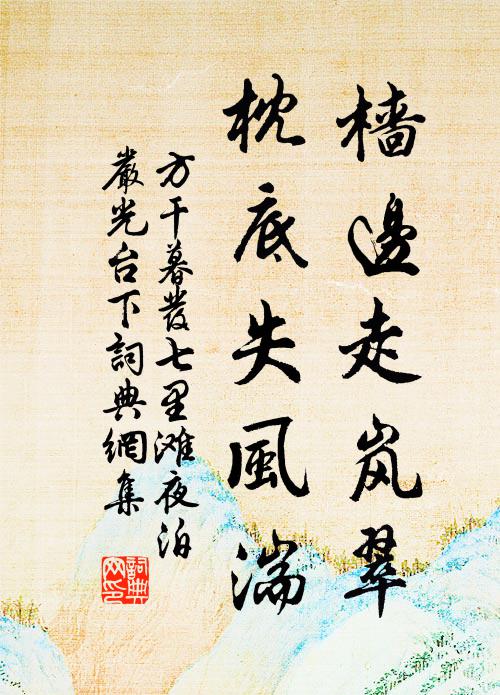 檣邊走岚翠
枕底失風湍
方干暮發七里滩夜泊
嚴光台下詞典網集
詞典網印